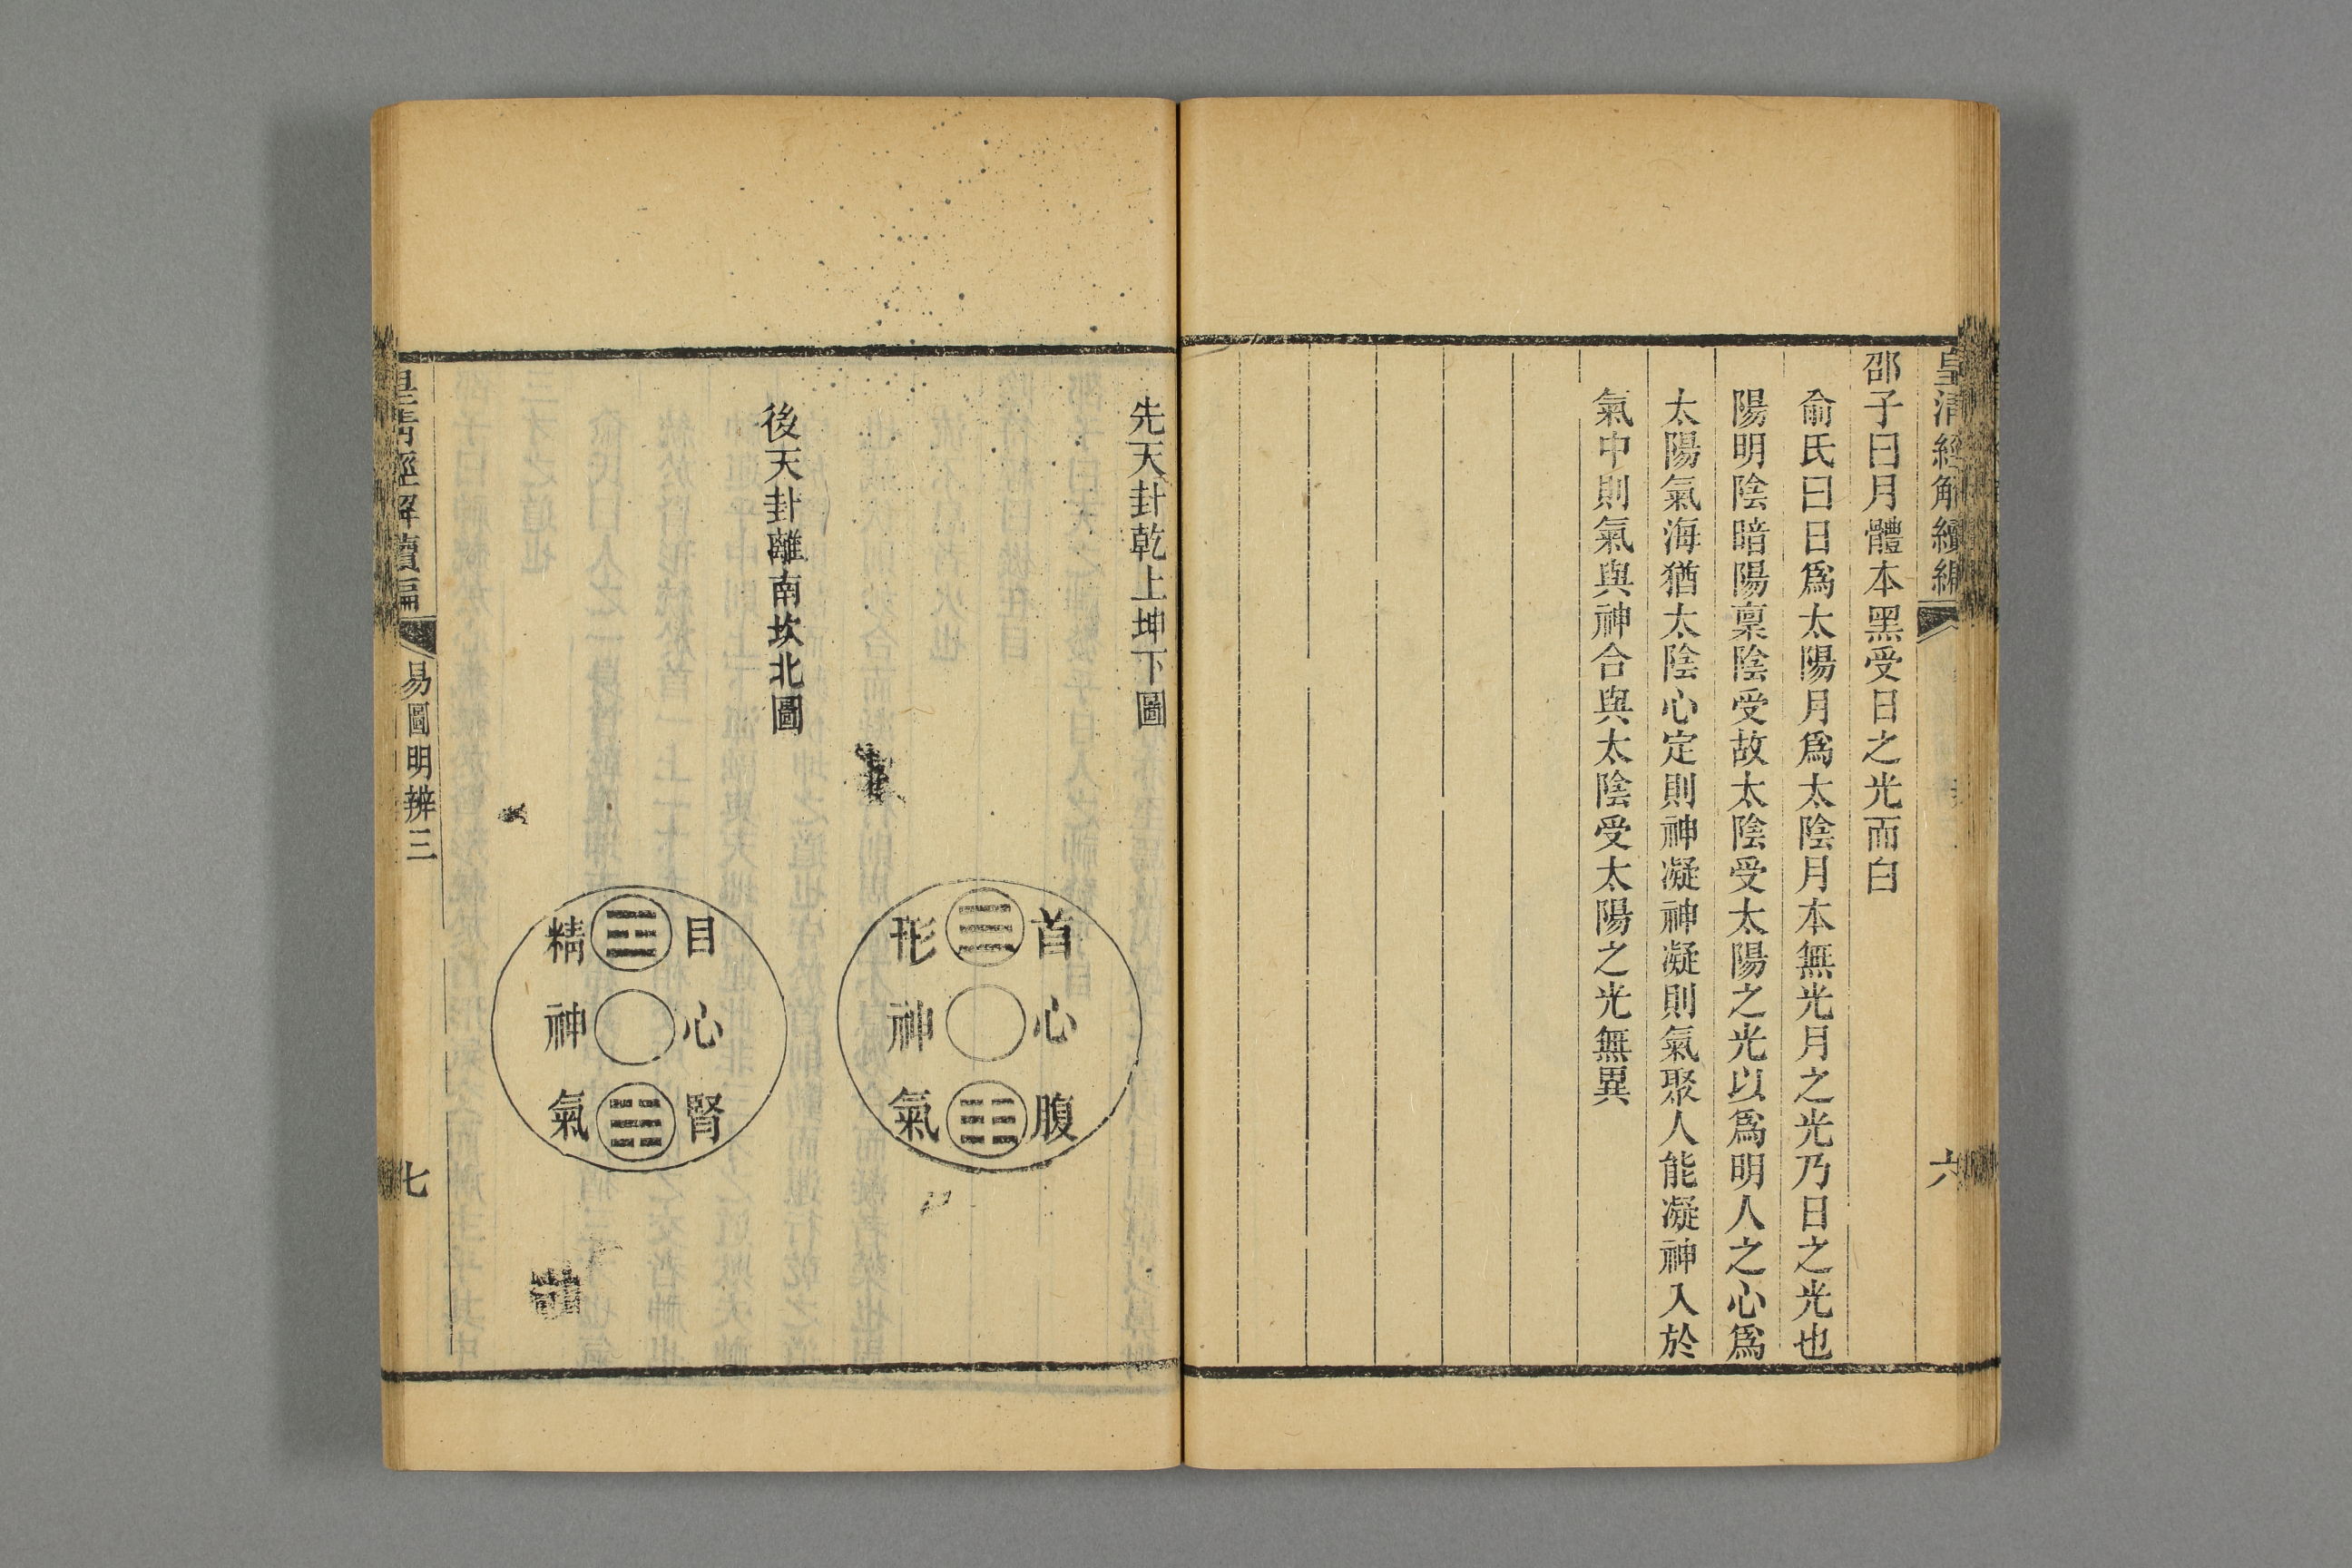 皇清經解續編
六
邵子曰月體本黑受日之光而白
俞氏曰日爲太陽月爲太陰月本無光月之光乃日之光也
陽明陰暗陽稟陰受故太陰受太陽之光以爲明人之心爲
太陽氣海猶太陰心定則神凝神凝則氣聚人能凝神入於
氣中則氣與神合與太陰受太陽之光無異
先天卦乾上坤下圖
首 心 腹
☰ ☷
形 神 氣
後天卦離南坎北圖
目 心 腎
☲ ☵
精 神 氣
皇清經解續編
易圖明辨三
七